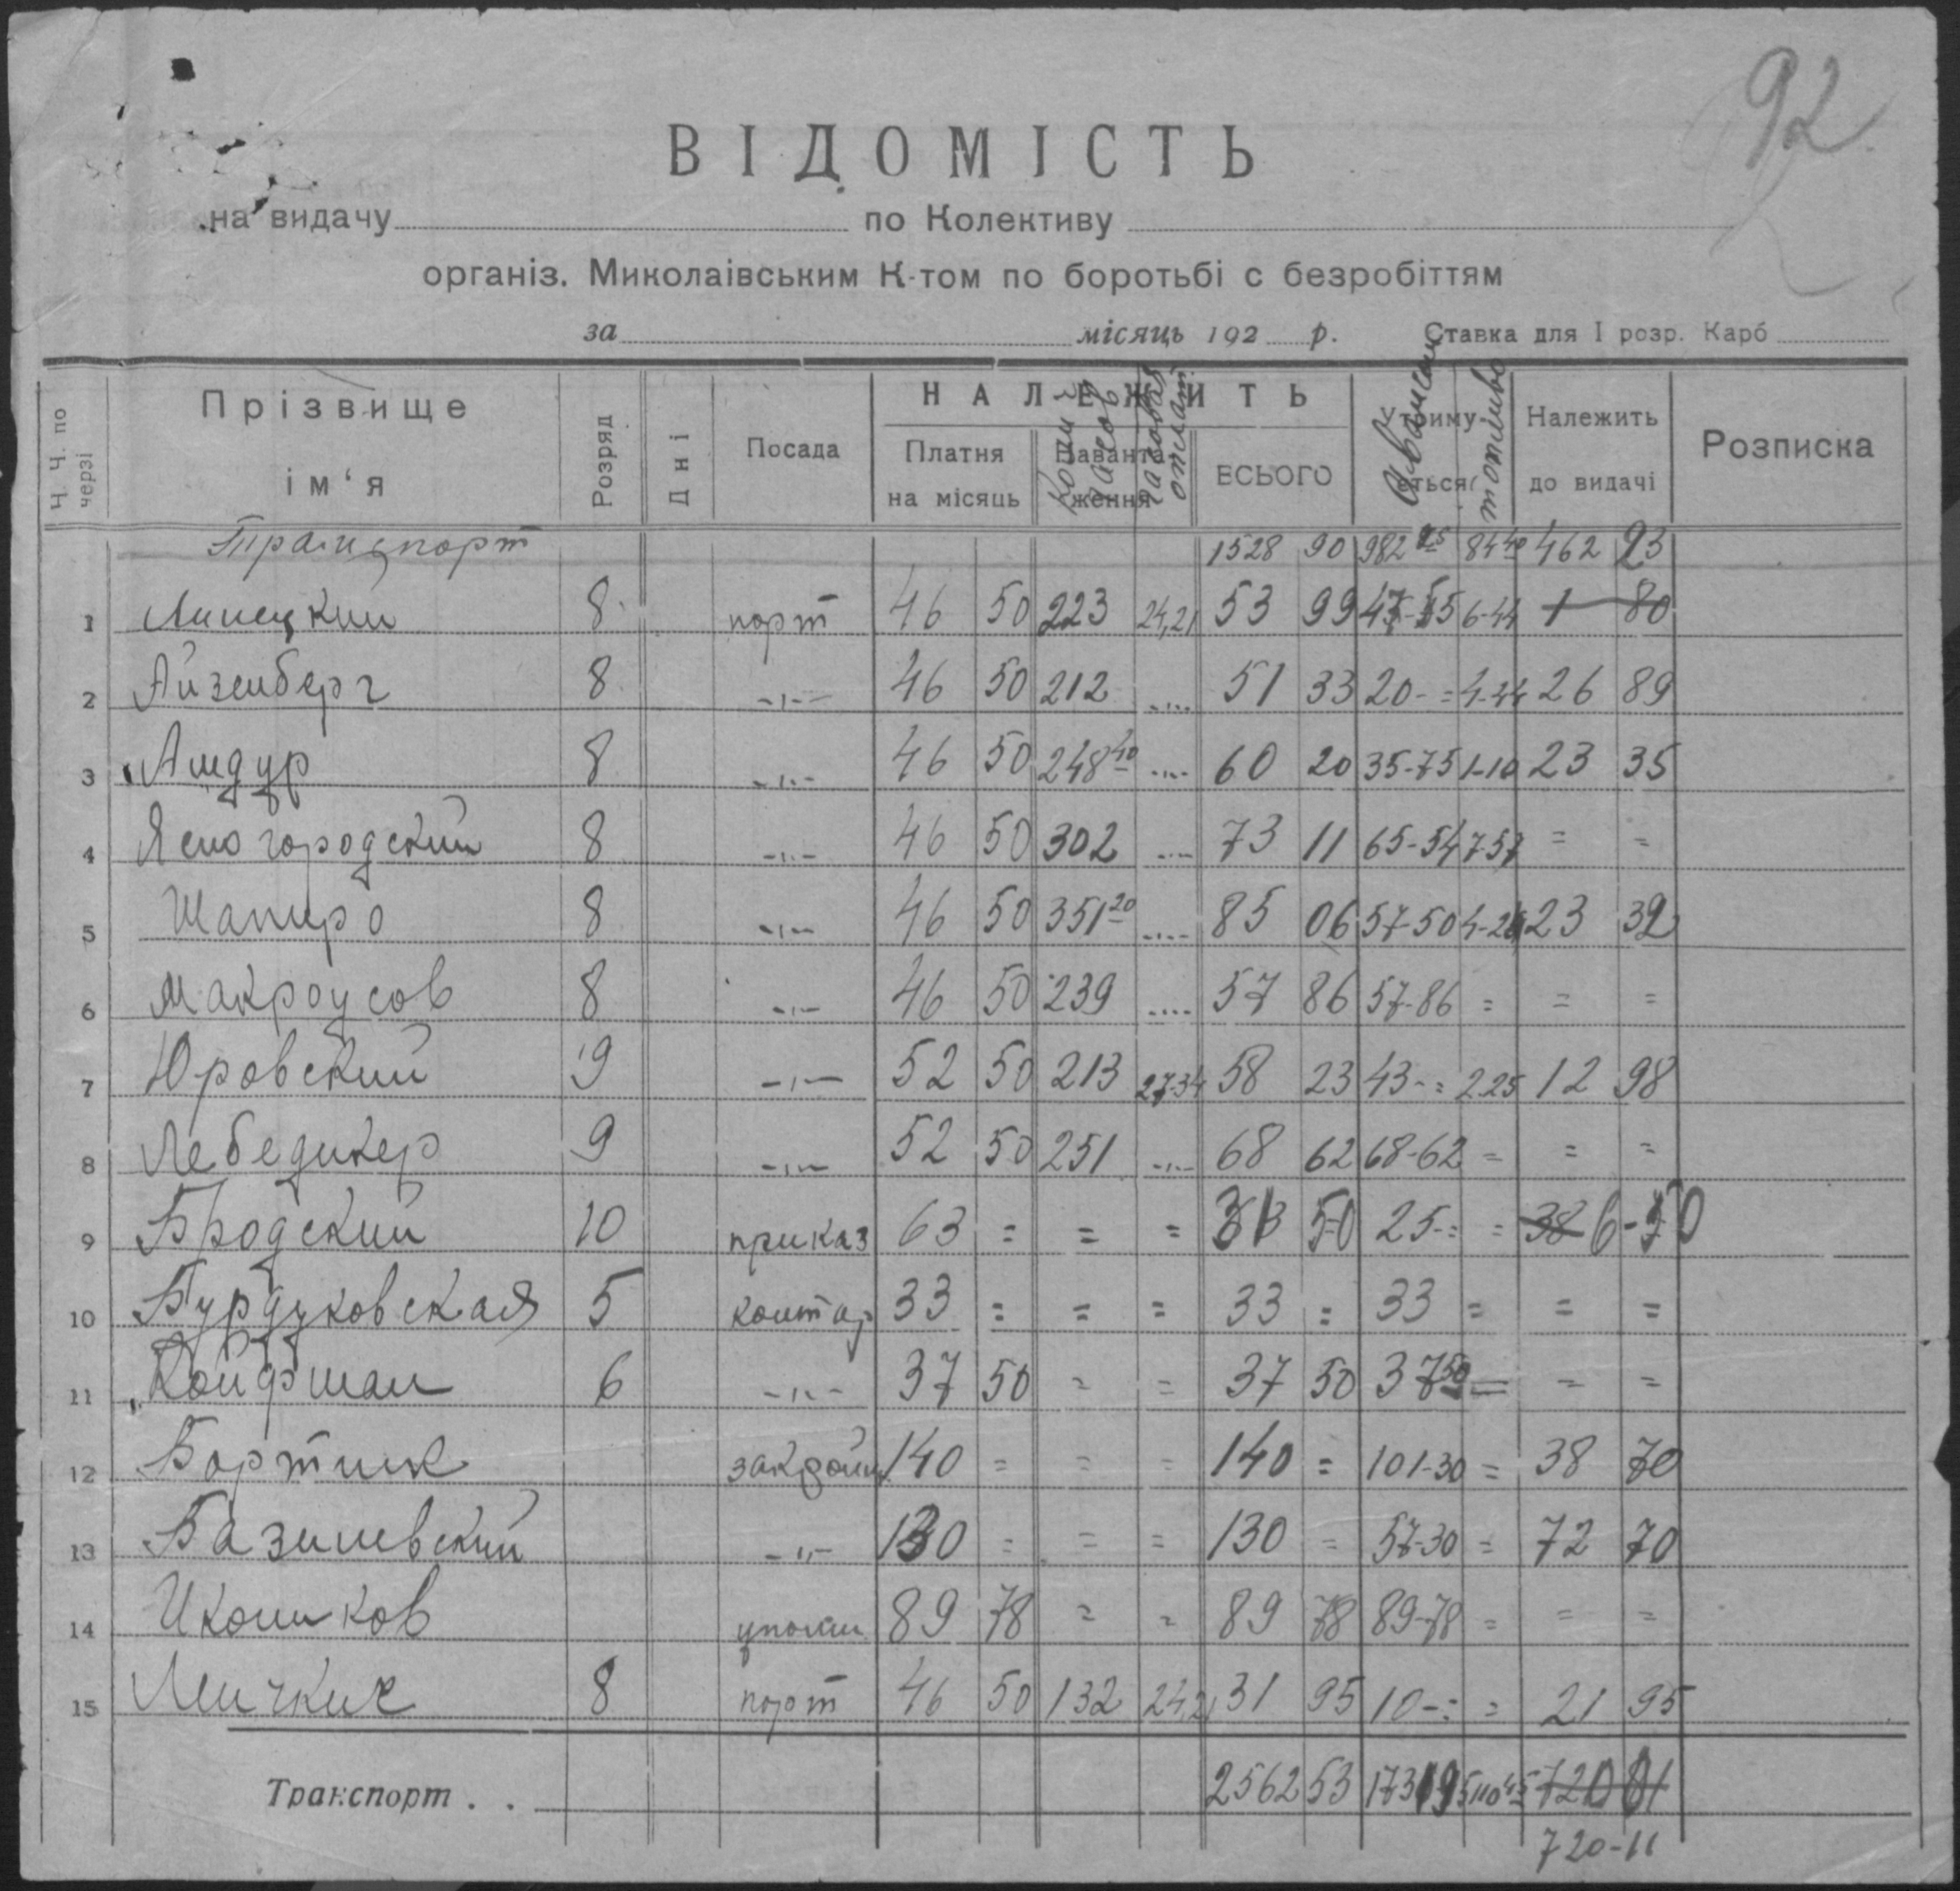 92
ВІДОМІСТЬ
на видачу по Колективу
організ. Миколаівським К-том по боротьбі с безробіттям
за місяць 192 р. Ставка для I розр. Карб
Ч. Ч. по черзі Прізвище ім‘я Розряд Дні Посада НАЛЕЖИТЬ Платня на місяць Наванта ження ВСЬОГО Утриму- ється Належить до видачі Розписка
часов топливо
Транспорт 1528 90 982 25 84 40 462 23
1 Липецкий 8 порт 46 50 223 24,21 53 99 47-55 6-44 1 80
2 Айзенберг 8 -"- 46 50 212 -"- 51 33 20-= 4-44 26 89
3 Амдур 8 -"- 46 50 248 40 -"- 60 20 35-75 1-10 23 35
4 Ясногородский 8 -"- 46 50 302 -"- 73 11 65-54 7-57 = =
5 Шапиро 8 -"- 46 50 351 20 -"- 85 06 57-50 4-24 23 32
6 Макроусов 8 -"- 46 50 239 -"- 57 86 57-86 = = =
7 Юровский 9 -"- 52 50 213 27-34 58 23 43-= 2-25 12 98
8 Лебединер 9 -"- 52 50 251 -"- 68 62 68-62 = = =
9 Бродский 10 приказ 63 = = = 31 50 25-= = 38 6-50
10 Бурдуковская 5 контор 33 = = = 33 = 33 = = =
11 Койфман 6 -"- 37 50 = = 37 50 37 50 = = =
12 Бортник 140 = = = 140 = 101-30 = 38 70
13 Базилевский -"- 130 = = = 130 = 57-30 = 72 70
14 Иконников 89 78 = = 89 78 89-78 = = =
15 8 порт 46 50 132 24,21 31 95 10-= = 21 95
Транспорт . . 2562 53 110 45
720-11